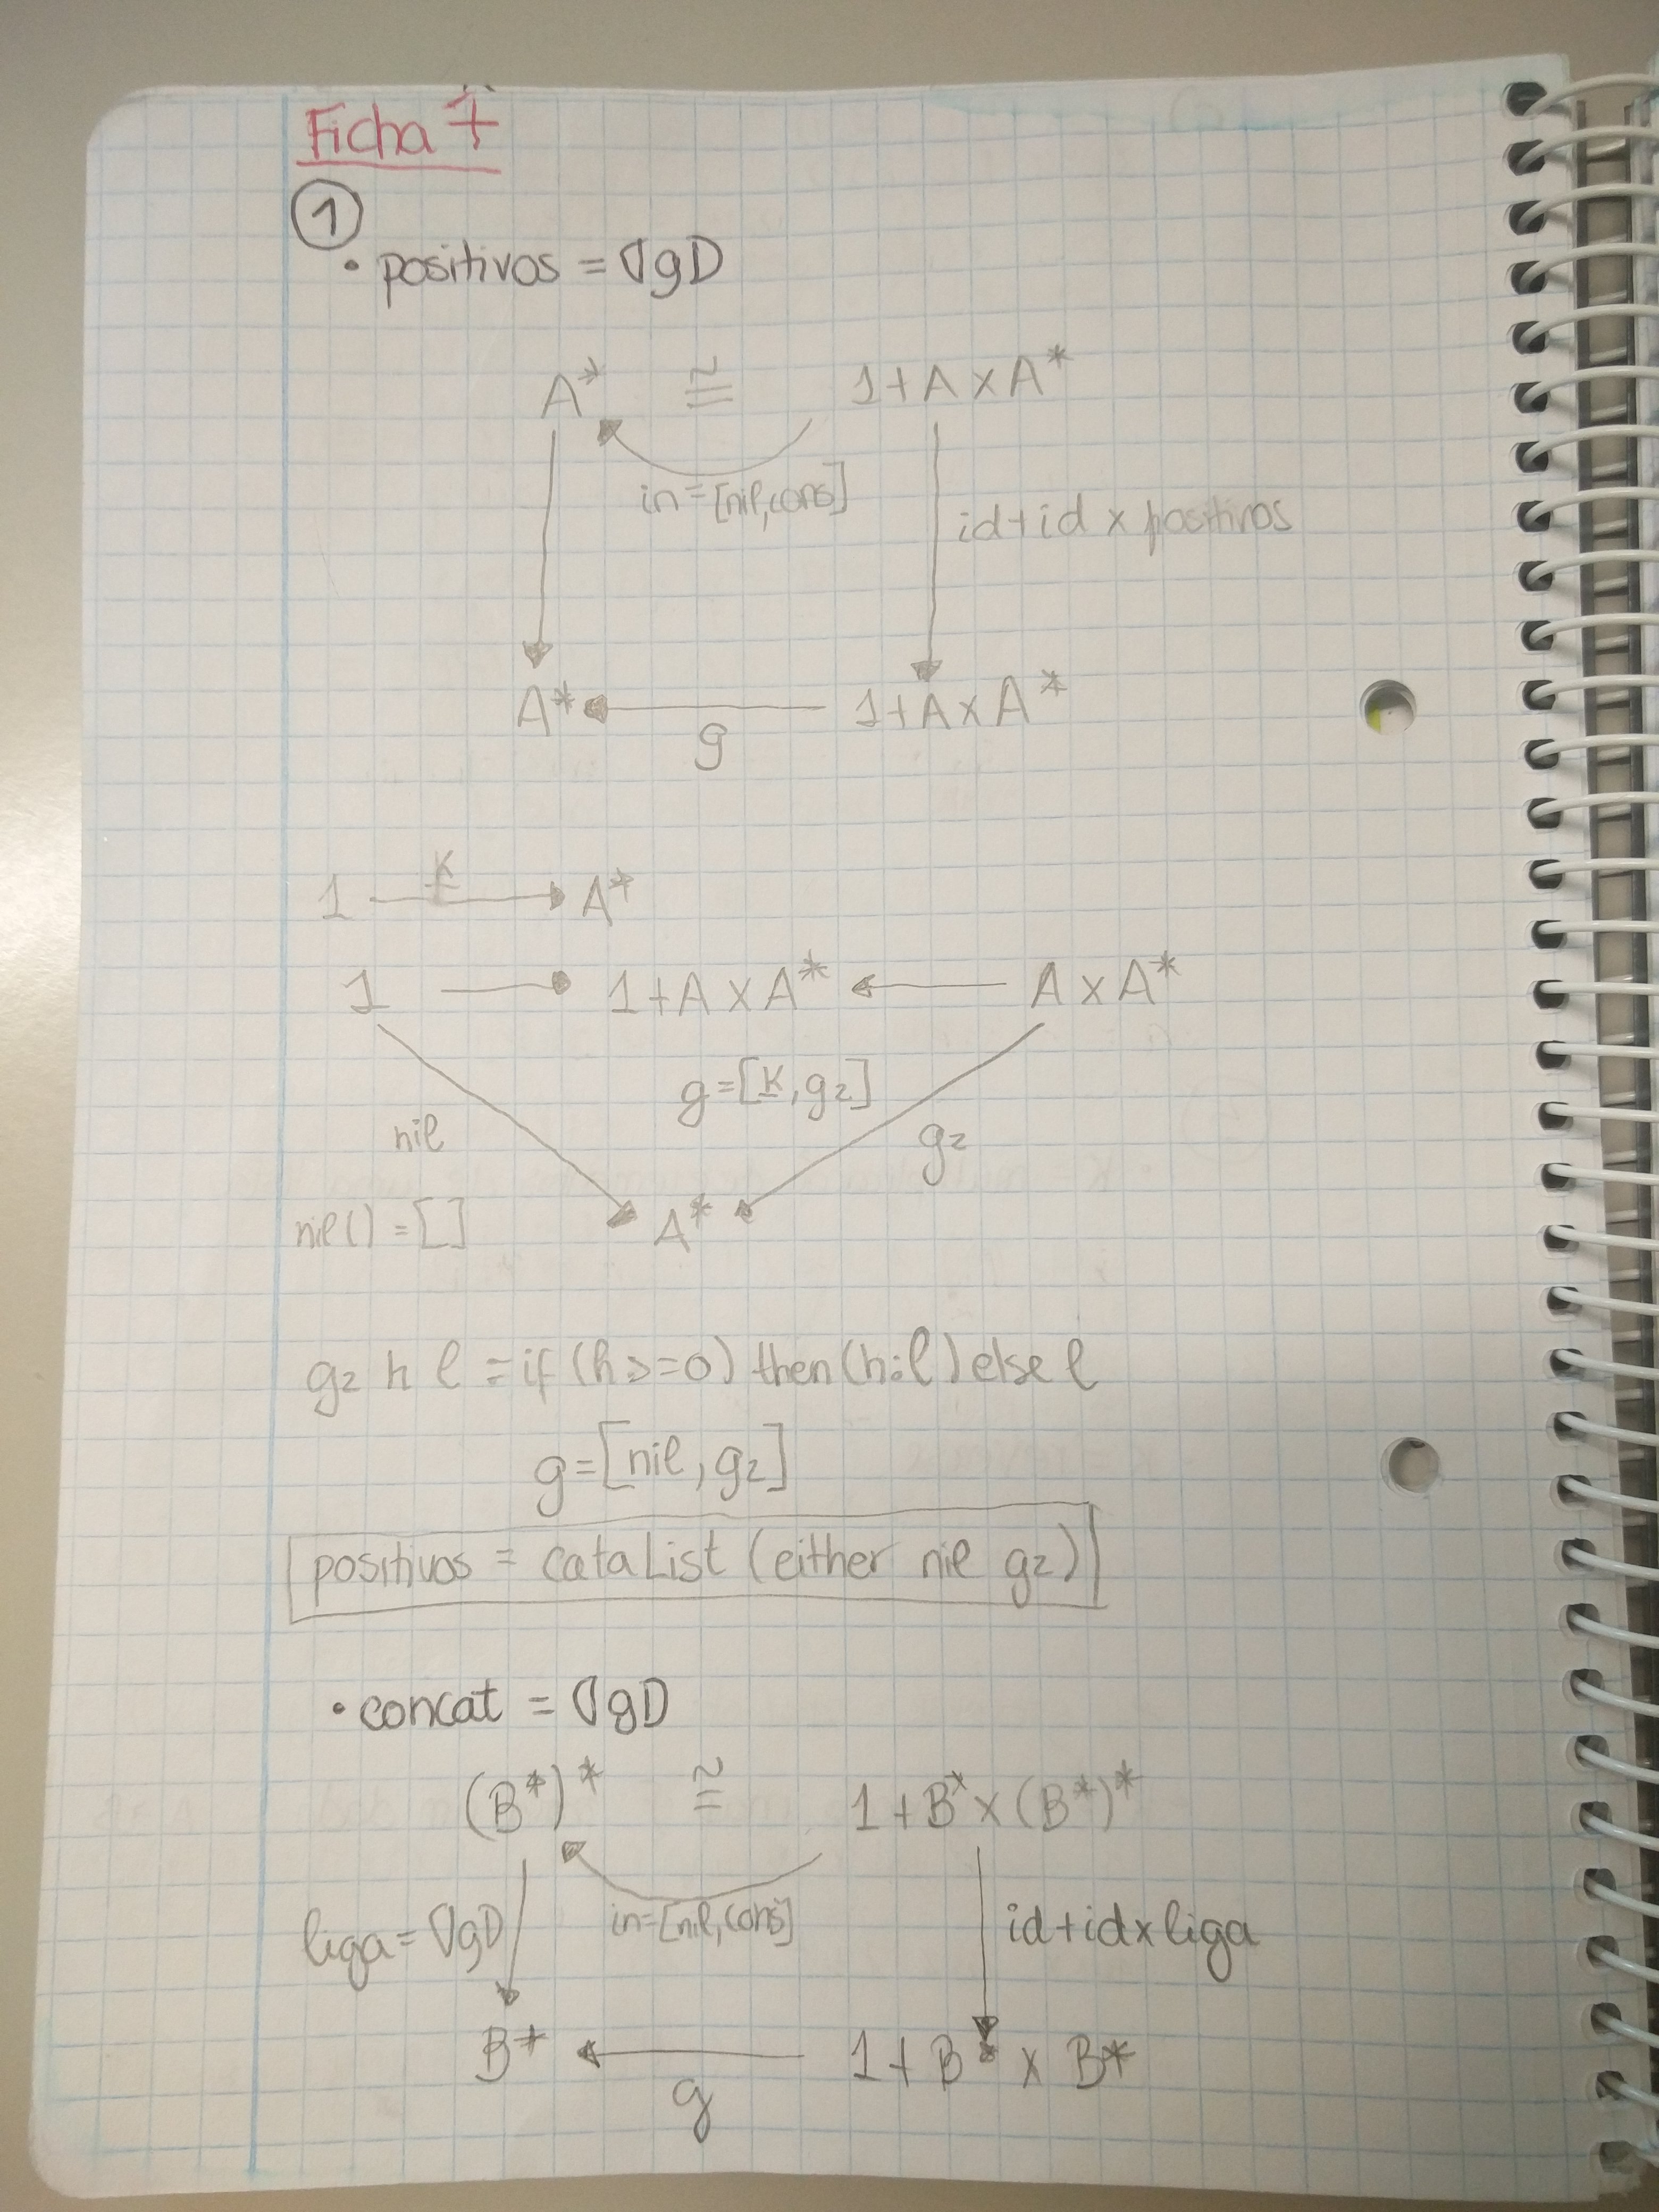 Ficha 7
①
• positivos = ⦇g⦈
A* ≅ 1+A×A*
in=[nil,cons]
id+id × positivos
A* 1+A×A*
g
k
1 A*
1 1+A×A* A×A*
g=[k,g2]
nil g2
nil()=[] A*
g2 h l = if (h>=0) then (h:l) else l
g=[nil,g2]
positivos = cataList (either nil g2)
• concat = ⦇g⦈
(B*)* ≅ 1+B*×(B*)*
liga=⦇g⦈ in=[nil,cons] id+id×liga
B* 1+B*×B*
g